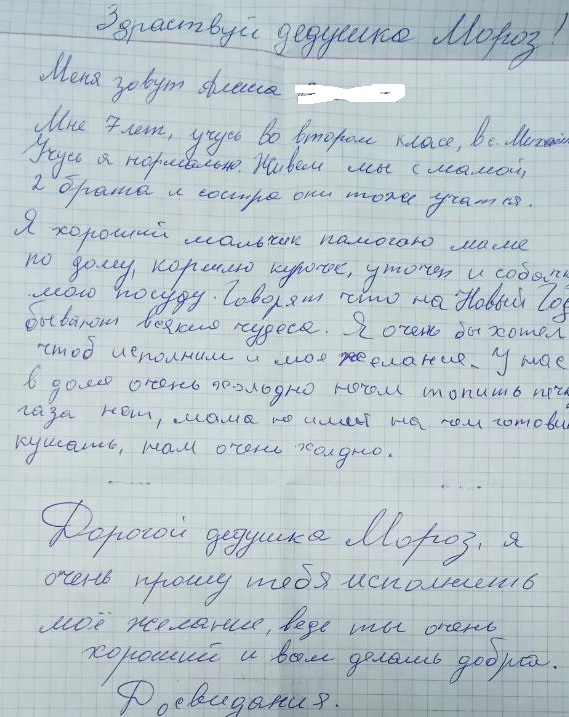 Здраствуй дедушка Мороз!
Меня зовут Алеша
Мне 7 лет, учусь во втором класе, в с.
Учусь я нормально. Живем мы с мамой,
2 брата и состра они тоже учатся.
Я хороший мальчик памогаю маме
по дому, кормлю курочек, уточек и
мою посуду. Говорят что на Новый Год
бывают всякие чудеса. Я очень бы хотел
чтоб исполним и мое желания. У нас
в доме очень холодно нечем топить
газа нет, мама не имеет на чем
кушать, нам очень холдно.
Дорогой дедушка Мороз, я
очень прошу тебя исполнить
моё желание, веде ты очень
хороший и всем делаеш добра.
Досвидания.